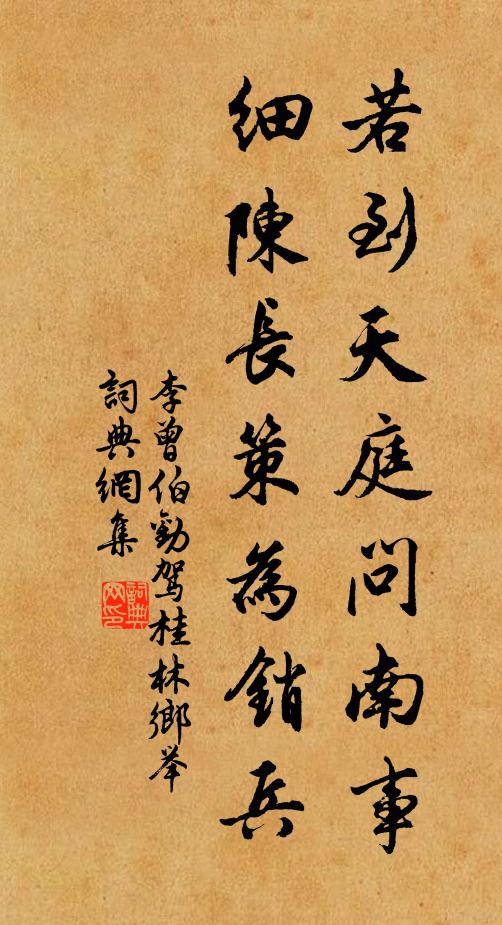 若到天庭問南事
細陳長策為銷兵
李曾伯勸駕桂林鄉举
詞典網集
詞典網印